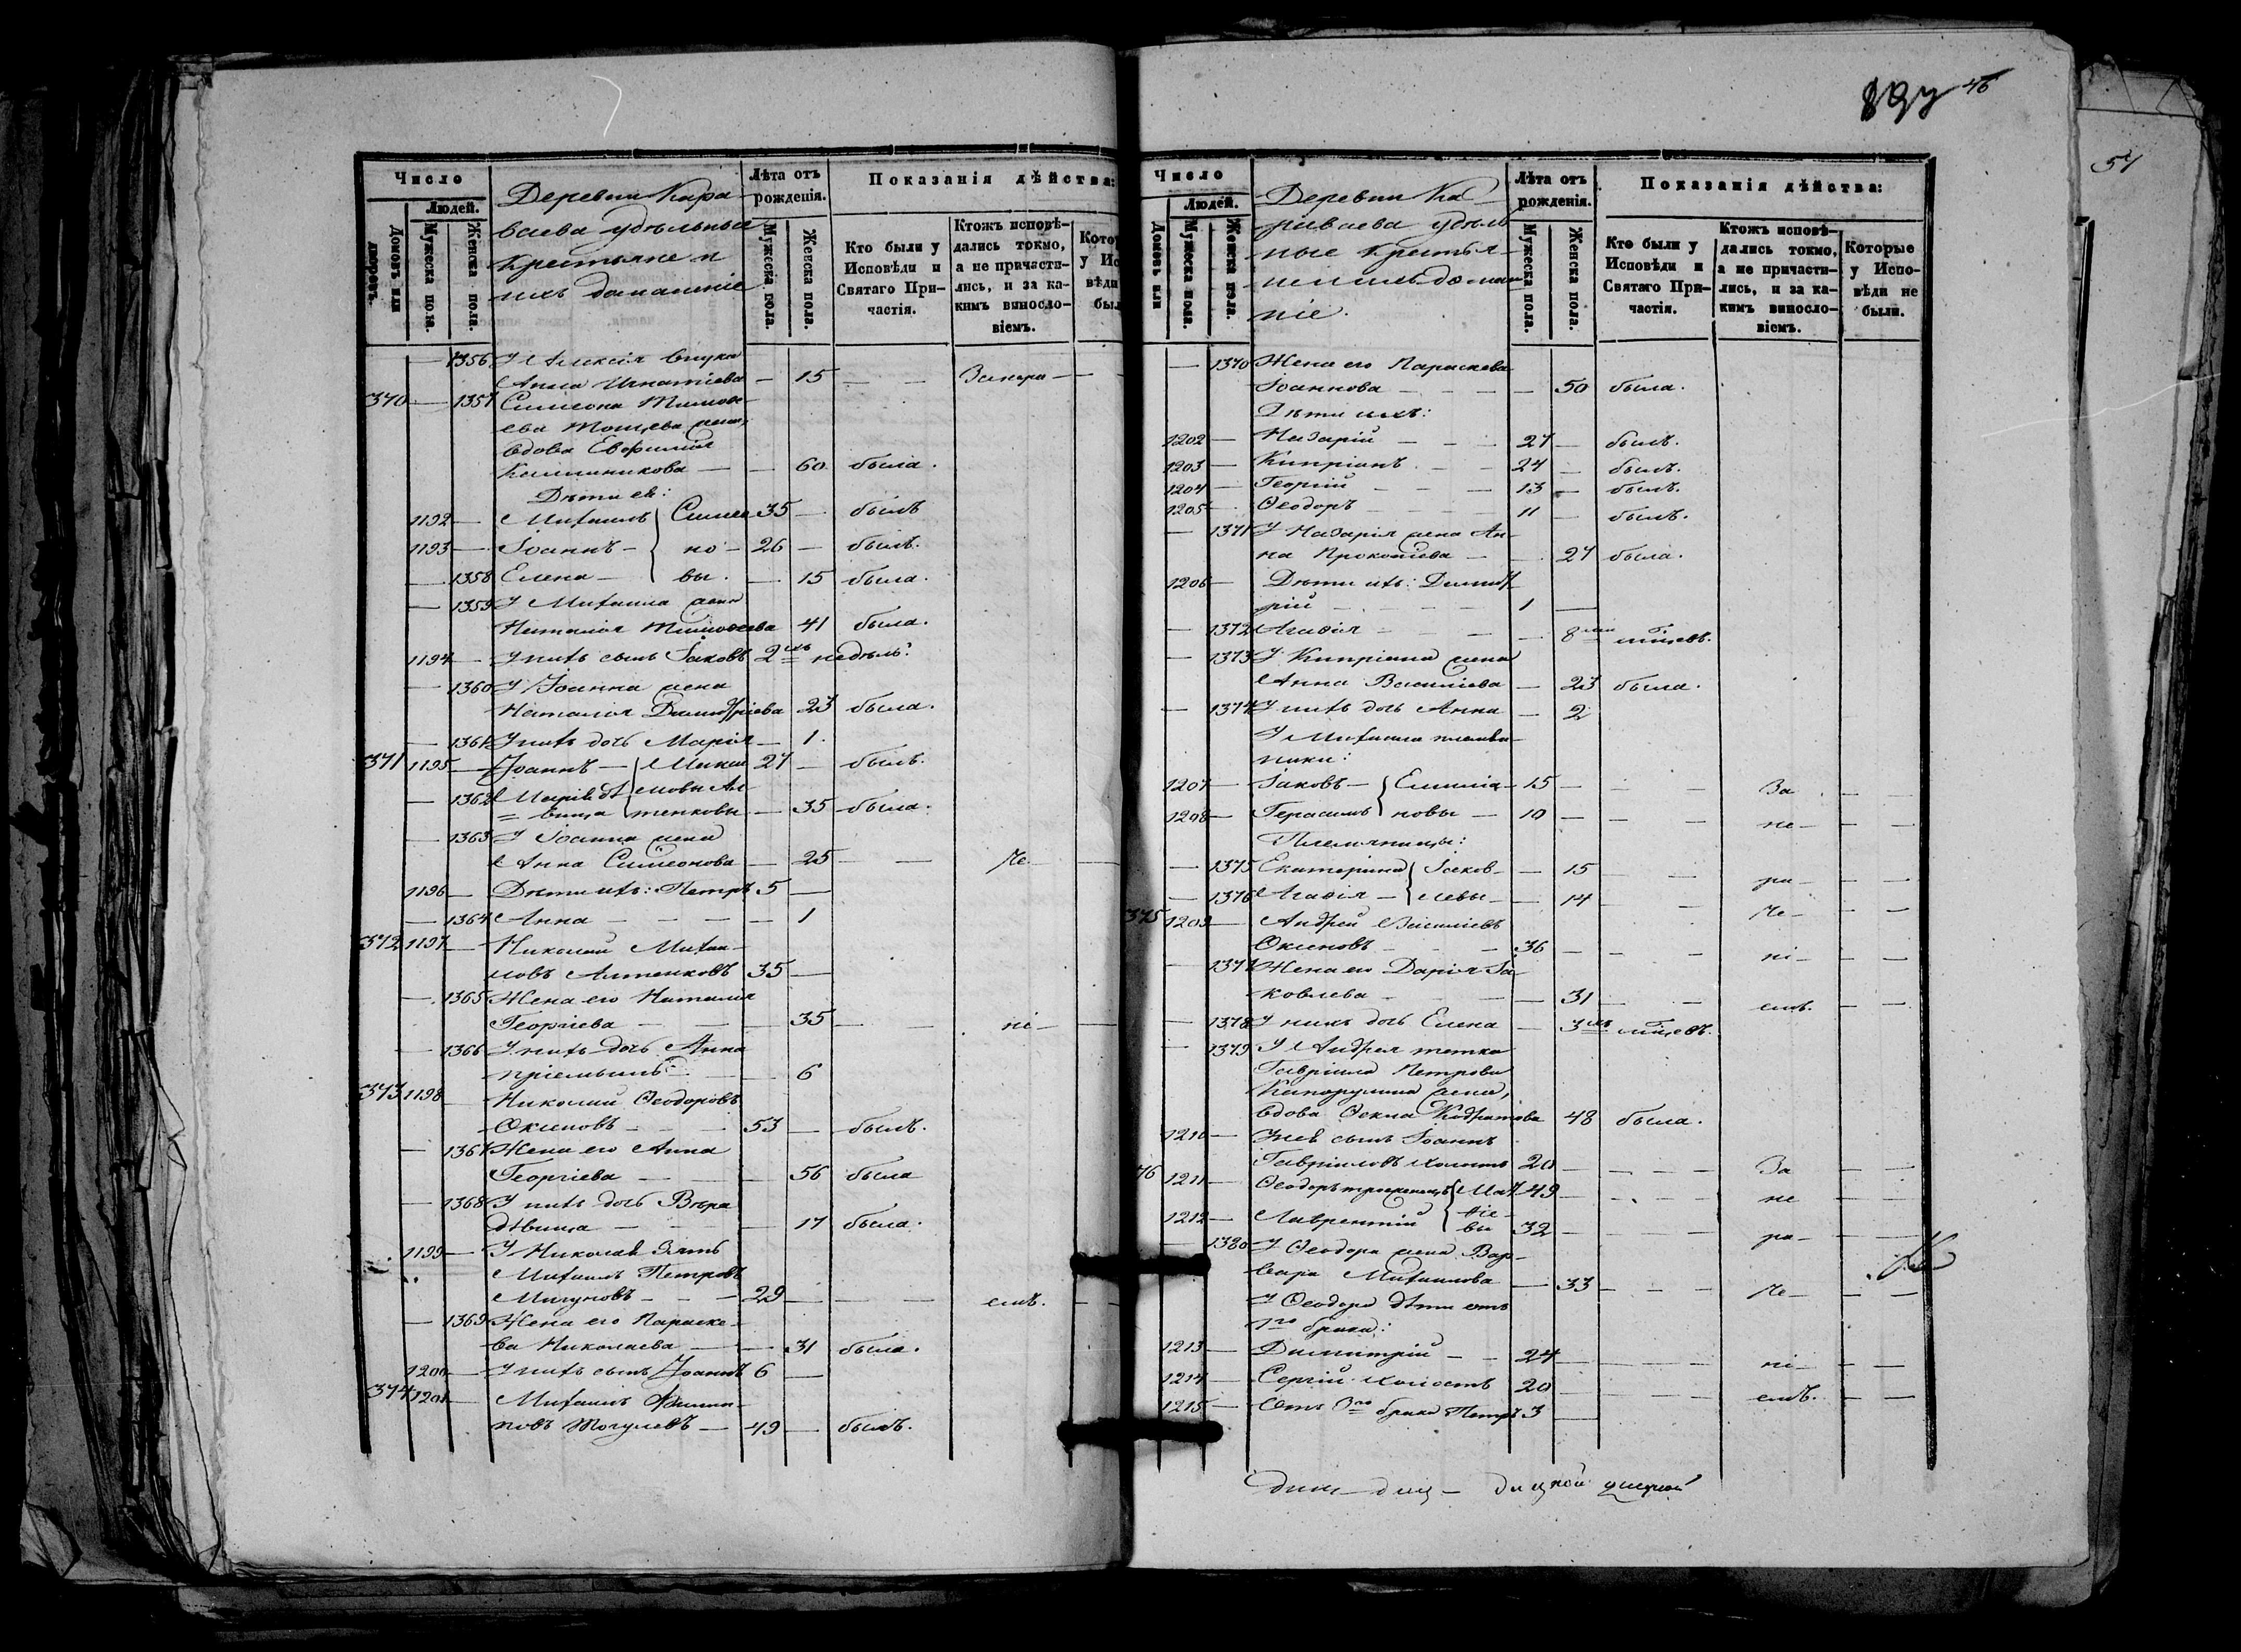 Число
Людей.
Домовъ или дворовъ.
Мужеска пола.
Женска пола.
Деревни Кара-
ваева удѣльные
крестьяне и
ихъ домашніе
Лѣта отъ рожденія.
Мужеска пола.
Женска пола.
Показанія дѣйства:
Кто были у Исповѣди и Святаго При-частія.
Ктожъ исповѣ-дались токмо, а не причасти-лись, и за ка-кимъ винослo-віемъ.
— 1356 У Алексія внука
Анна Игнатіева — 15 — —
370 — 1357 Симеона Тимоѳе-
ева жена,
вдова Евфимія
60 была.
Дѣти ея:
1192 — Михаилъ Симео 35 — былъ
1193 — Іоаннъ — но — 26 — былъ.
— 1358 Елена — вы. — 15 была.
— 1359 У Михаила жена
Наталія Тимоѳеева 41 была.
1194 — У нихъ сынъ Іаковъ 2 недѣль.
— 1360 У Іоанна жена
Наталія Димитріева 23 была.
— 1361 У нихъ дочь Марія — 1.
371 1195 — Іоаннъ — 27 — былъ.
— 1362 Марія дѣ
вица — 35 была.
— 1363 У Іоанна жена
Анна Симеонова — 25 — — Не —
1196 — Дѣти ихъ: Петръ 5 —
— 1364 Анна — — — — 1
372 1197 — Николай Михаи-
ловъ Алтенковъ 35 —
— 1365 Жена его Наталія
Георгіева — — — 35 — — ні —
— 1366 У нихъ дочь Анна
пріемышъ — 6
373 1198 Николай Ѳеодоровъ
Окиновъ — — 53 — былъ.
— 1367 Жена его Анна
Георгіева — — — 56 была
— 1368 У нихъ дочь Вѣра
дѣвица — — — 17 была.
1199 — У Николая зять
Михаилъ Петровъ
29 — — — емъ.
— 1369 Жена его Параске-
ва Николаева — — 31 была.
1200 — У нихъ сынъ Іоаннъ 6 —
374 1201 — Михаилъ Филип-
повъ — 49 — былъ.
46
54
Число
Людей.
Домовъ или
Мужеска пола.
Женска пола.
Деревни Ка-
раваева удѣль-
ные крестья-
не и ихъ домаш-
ніе.
Лѣта отъ рожденія.
Мужеска пола.
Женска пола.
Показанія дѣйства:
Кто были у Исповѣди и Святаго При-частія.
Ктожъ исповѣ-дались токмо, а не причасти-лись, и за ка-кимъ винослo-віемъ.
Которые у Испо-вѣди не были.
— 1370 Жена его Параскева
Іоаннова — — — 50 была.
Дѣти ихъ:
1202 — Назарій — — 27 — былъ.
1203 — Кипріанъ — — 24 — былъ.
1204 — Георгій — — — 13 — былъ.
1205 — Ѳеодоръ 11 — былъ.
— 1371 У Назарія жена Ан-
на Прокопіева — — 27 была.
1206 — Дѣти ихъ: Димит
рій — — — — 1 —
— 1372 Агаѳія — — — 8 мѣсяцевъ.
— 1373 У Кипріана жена
Анна Василіева — 23 была.
— 1374 У нихъ дочь Анна — 2
У Михаила племян-
ники:
1207 — Іаковъ — Емилiа- 15 — — — За — —
1208 — Герасимъ новы — 10 — — — не — —
Племянницы:
— 1375 Екатерина Іаков- — 15 — — ра — —
— 1376 Агаѳія — левы — — 14 — — Не — —
375 1209 — Андрей Василіевъ
Окиновъ — — — 36 — — — ні — —
1377 Жена его Дарія Іа-
ковлева — — — 31 — — емъ. — —
— 1378 У нихъ дочь Елена — 3 мѣсяцевъ.
— 1379 У Андрея тетка
Гавріила Петрова
жена,
вдова Ѳекла Кодратова 48 была.
1210 — У нея сынъ Іоаннъ
Гавріиловъ холостъ 20 — — — За — —
76 1211 — Ѳеодоръ Мат 49 — — — не — —
1212 — Лаврентій ѳіе-
вы 32 — — — ра — —
— 1380 У Ѳеодора жена Вар-
вара Михаилова — 33 — — Не — —
У Ѳеодора дѣти отъ
1го брака:
1213 — Димитрій — — 24 — — — ні — —
1214 — Сергій холостъ 20 — — — емъ. — —
1215 — Отъ 2го брака Петръ 3 —